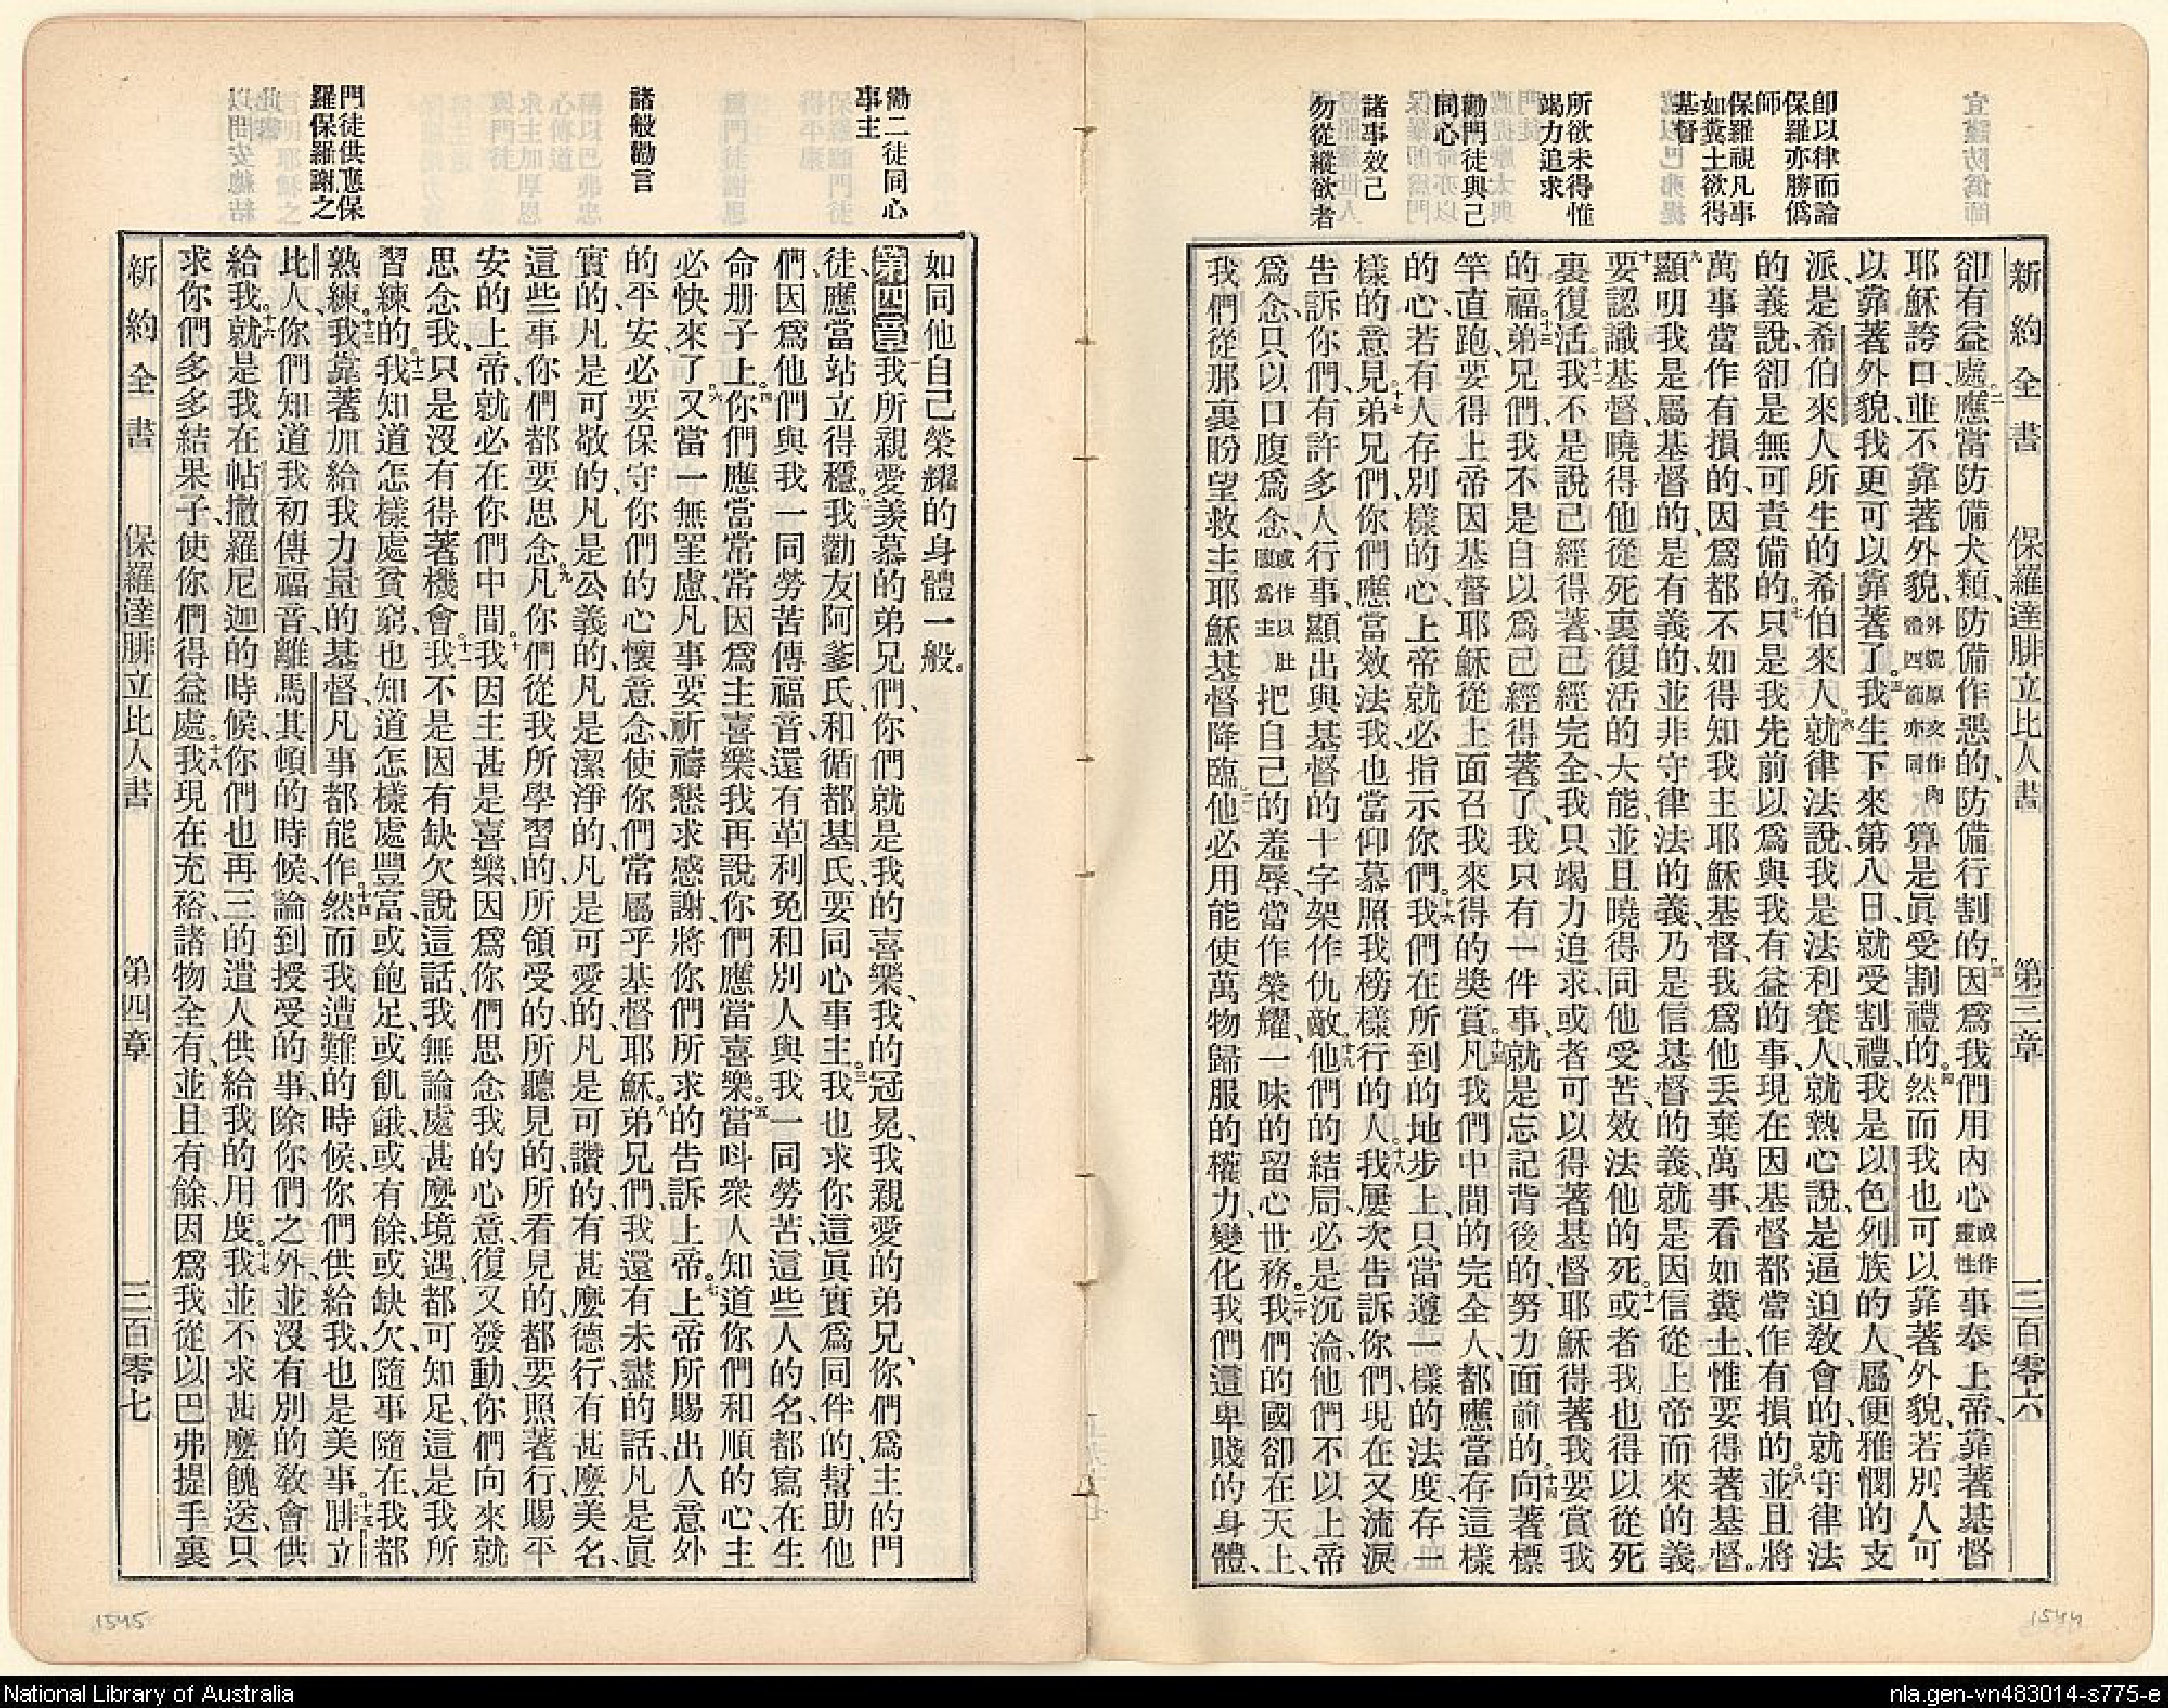 卽以律而論
保羅亦勝僞
師
保羅視凡事
如糞土欲得
基督
所欲未得惟
竭力追求
勸門徒與己
同心
諸事效己
勿從縱欲者
新約全書 保羅達腓立比人書 第三章 三百零六
卻有益處。二應當防備犬類、防備作惡的、防備行割的。三因爲我們用內心或作靈性事奉上帝、靠著基督
耶穌誇口、並不靠著外貌、外貌原文作肉體四節亦同算是眞受割禮的。四然而我也可以靠著外貌、若別人可
以靠著外貌、我更可以靠著了。五我生下來第八日、就受割禮、我是以色列族的人、屬便雅憫的支
派、是希伯來人所生的希伯來人。六就律法說、我是法利賽人、就熱心說、是逼迫敎會的、就守律法
的義說、卻是無可責備的。七只是我先前以爲與我有益的事、現在因基督都當作有損的。八並且將
萬事當作有損的、因爲都不如得知我主耶穌基督、我爲他丟棄萬事、看如糞土、惟要得著基督。
九顯明我是屬基督的、是有義的、並非守律法的義、乃是信基督的義、就是因信從上帝而來的義。
十要認識基督、曉得他從死裏復活的大能、並且曉得同他受苦、效法他的死。十一或者我也得以從死
裏復活。十二我不是說已經得著、已經完全、我只竭力追求、或者可以得著基督耶穌得著我要賞我
的福。十三弟兄們、我不是自以爲已經得著了、我只有一件事、就是忘記背後的、努力面前的。十四向著標
竿直跑、要得上帝因基督耶穌從上面召我來得的獎賞。十五凡我們中間的完全人、都應當存這樣
的心、若有人存別樣的心、上帝就必指示你們。十六我們在所到的地步上、只當遵一樣的法度、存一
樣的意見。十七弟兄們、你們應當效法我、也當仰慕照我榜樣行的人。十八我屢次告訴你們、現在又流淚
告訴你們、有許多人行事、顯出與基督的十字架作仇敵。十九他們的結局、必是沉淪、他們不以上帝
爲念、只以口腹爲念、或作以肚腹爲主把自己的羞辱、當作榮耀、一味的留心世務。二十我們的國卻在天上、
我們從那裏盼望救主耶穌基督降臨。二一他必用能使萬物歸服的權力、變化我們這卑賤的身體、
勸二徒同心
事主
諸般勸言
門徒供應保
羅保羅謝之
如同他自己榮耀的身體一般。
第四章一我所親愛羨慕的弟兄們、你們就是我的喜樂、我的冠冕、我親愛的弟兄、你們爲主的門
徒、應當站立得穩。二我勸友阿爹氏和循都基氏、要同心事主。三我也求你這眞實爲同伴的、幫助他
們、因爲他們與我一同勞苦傳福音、還有革利免和別人與我一同勞苦、這些人的名、都寫在生
命册子上。四你們應當常常因爲主喜樂、我再說、你們應當喜樂。五當呌衆人知道你們和順的心、主
必快來了。六又當一無罣慮、凡事要祈禱懇求感謝、將你們所求的告訴上帝。七上帝所賜出人意外
的平安、必要保守你們的心懷意念、使你們常屬乎基督耶穌。八弟兄們、我還有未盡的話、凡是眞
實的、凡是可敬的、凡是公義的、凡是潔淨的、凡是可愛的、凡是可讚的、有甚麼德行、有甚麼美名、
這些事、你們都要思念。九凡你們從我所學習的、所領受的、所聽見的、所看見的、都要照著行、賜平
安的上帝、就必在你們中間。十我因主甚是喜樂、因爲你們思念我的心意、復又發動、你們向來就
思念我、只是沒有得著機會。十一我不是因有缺欠說這話、我無論處甚麼境遇、都可知足、這是我所
習練的。十二我知道怎樣處貧窮、也知道怎樣處豐富、或飽足、或飢餓、或有餘、或缺欠、隨事隨在、我都
熟練。十三我靠著加給我力量的基督、凡事都能作。十四然而我遭難的時候、你們供給我、也是美事。十五腓立
比人、你們知道我初傳福音、離馬其頓的時候、論到授受的事、除你們之外、並沒有別的敎會供
給我。十六就是我在帖撒羅尼迦的時候、你們也再三的遣人供給我的用度。十七我並不求甚麼餽送、只
求你們多多結果子、使你們得益處。十八我現在充裕、諸物全有、並且有餘、因爲我從以巴弗提手裏
新約全書 保羅達腓立比人書 第四章 三百零七
1545
1544
National Library of Australia
nla.gen-vn483014-s775-e